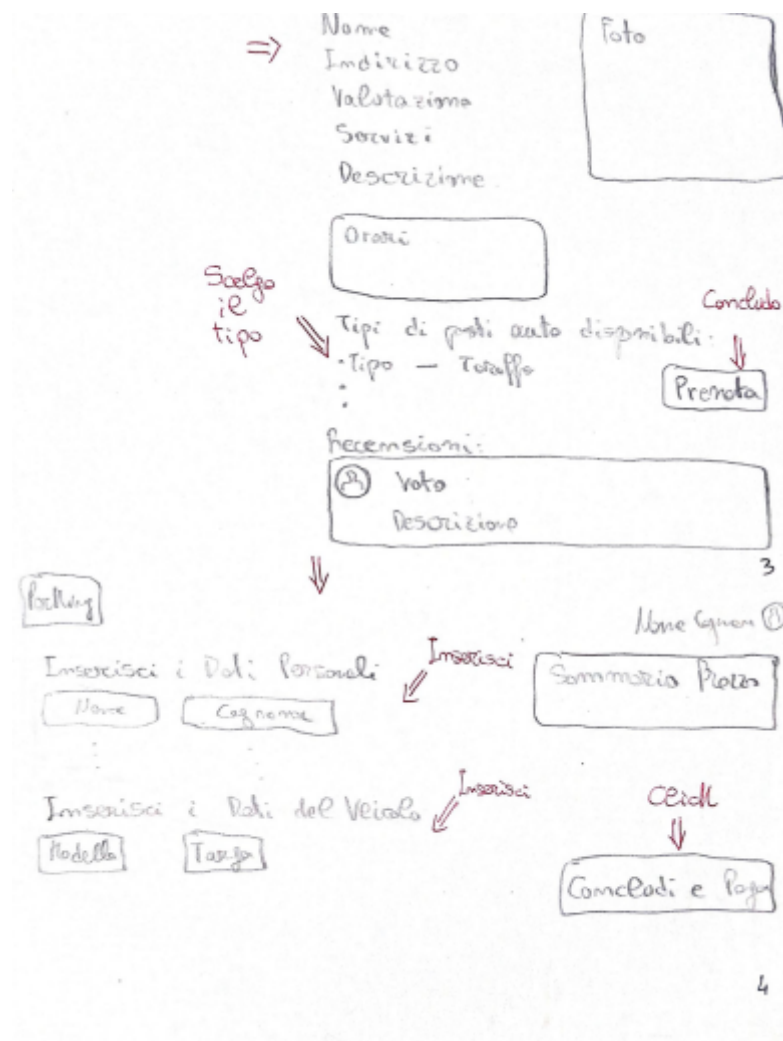 ⇒ Nome
Foto
Indirizzo
Valutazione
Servizi
Descrizione
Orari
Scelgo
il
tipo
Concludo
Tipi di posti auto disponibili:
· Tipo — Tariffa
Prenota
Recensioni:
Voto
Descrizione
3
Parking
Nome Cognome
Inserisci i Dati Personali
Inserisci
Sommario Prezzo
Nome
Cognome
Inserisci i Dati del Veicolo
Inserisci
Click
Modello
Targa
Concludi e Paga
4